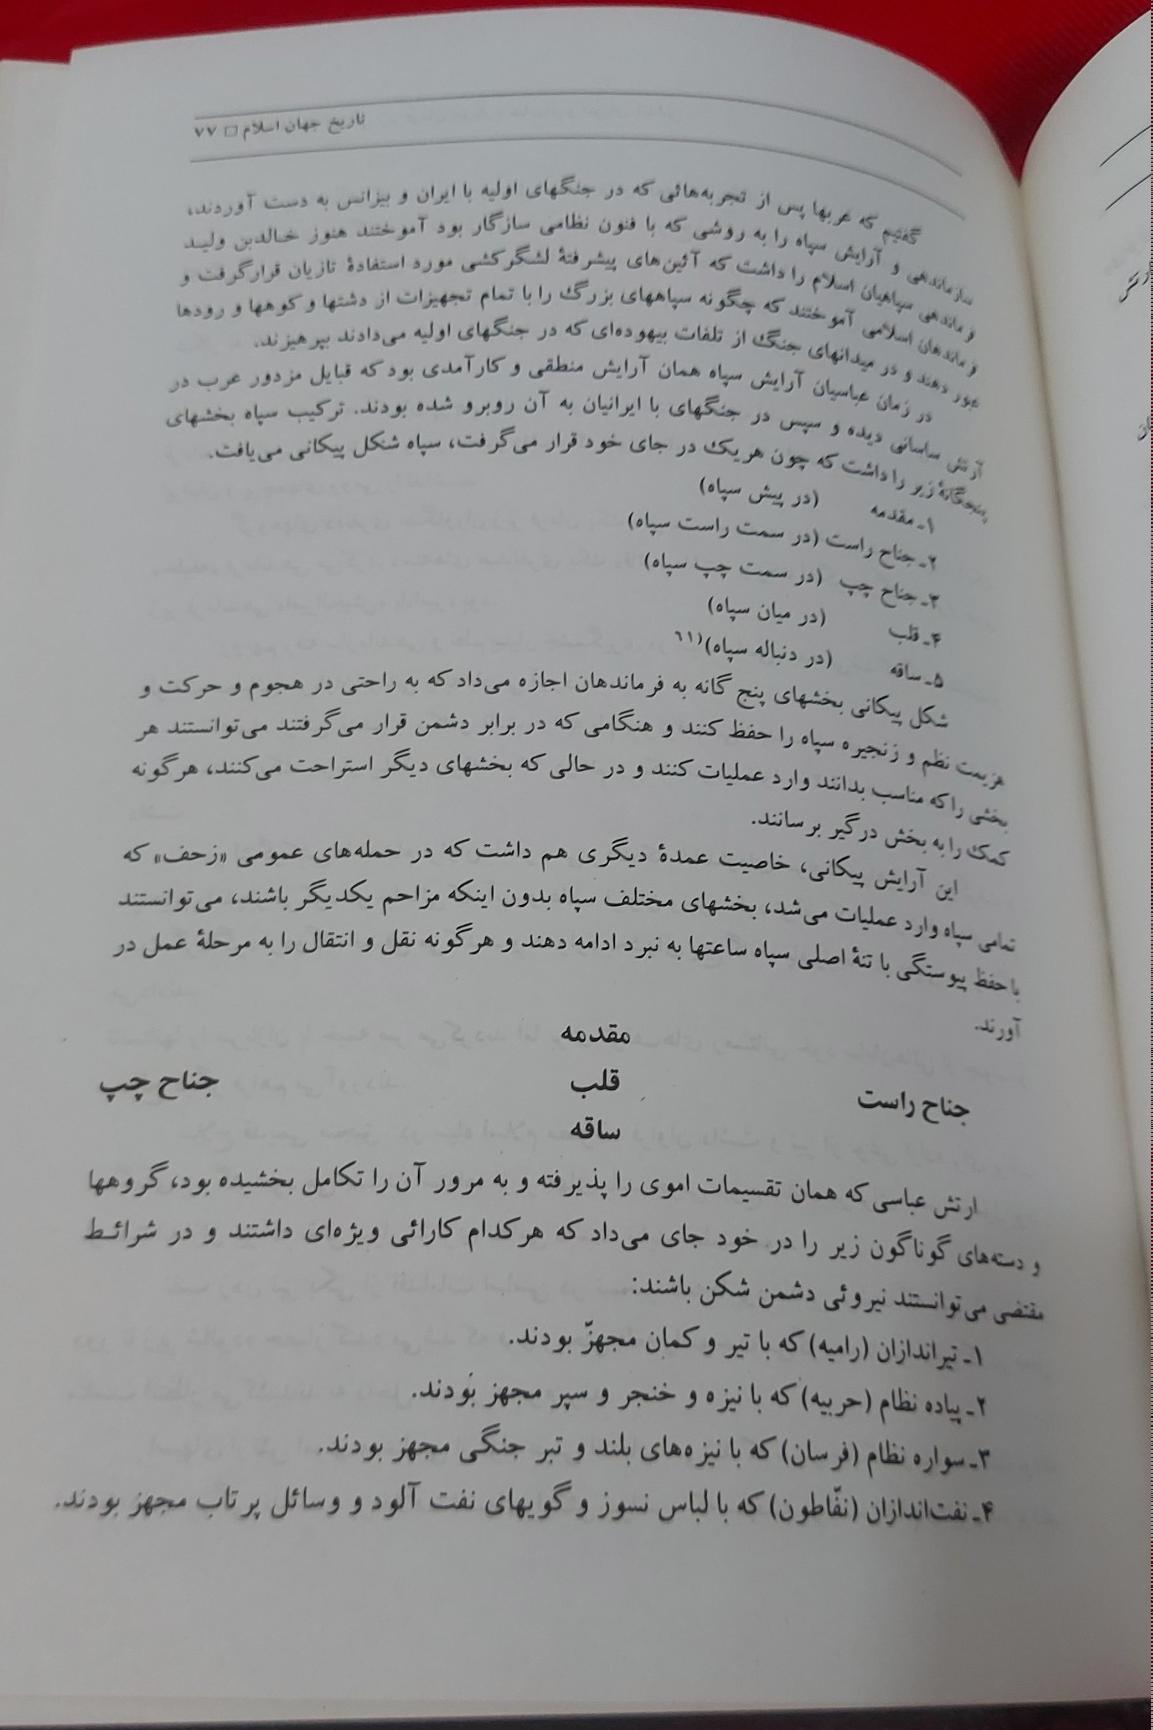 تاریخ جهان اسلام □ ۷۷
گفتیم که عربها پس از تجربه‌هائی که در جنگهای اولیه با ایران و بیزانس به دست آوردند،
سازماندهی و آرایش سپاه را به روشی که با فنون نظامی سازگار بود آموختند هنوز خالدبن ولید
فرماندهی سپاهیان اسلام را داشت که آئین‌های پیشرفتهٔ لشگرکشی مورد استفادهٔ تازیان قرارگرفت و
فرماندهان اسلامی آموختند که چگونه سپاههای بزرگ را با تمام تجهیزات از دشتها و کوهها و رودها
عبور دهند و در میدانهای جنگ از تلفات بیهوده‌ای که در جنگهای اولیه می‌دادند بپرهیزند.
در زمان عباسیان آرایش سپاه همان آرایش منطقی و کارآمدی بود که قبایل مزدور عرب در
آرتش ساسانی دیده و سپس در جنگهای با ایرانیان به آن روبرو شده بودند. ترکیب سپاه بخشهای
پنجگانهٔ زیر را داشت که چون هریک در جای خود قرار می‌گرفت، سپاه شکل پیکانی می‌یافت.
۱ـ مقدمه (در پیش سپاه)
۲ـ جناح راست (در سمت راست سپاه)
۳ـ جناح چپ (در سمت چپ سپاه)
۴ـ قلب (در میان سپاه)
۵ـ ساقه (در دنباله سپاه)(۶۱
شکل پیکانی بخشهای پنج گانه به فرماندهان اجازه می‌داد که به راحتی در هجوم و حرکت و
هزیمت نظم و زنجیره سپاه را حفظ کنند و هنگامی که در برابر دشمن قرار می‌گرفتند می‌توانستند هر
بخشی را که مناسب بدانند وارد عملیات کنند و در حالی که بخشهای دیگر استراحت می‌کنند، هرگونه
کمک را به بخش درگیر برسانند.
این آرایش پیکانی، خاصیت عمدهٔ دیگری هم داشت که در حمله‌های عمومی «زحف» که
تمامی سپاه وارد عملیات می‌شد، بخشهای مختلف سپاه بدون اینکه مزاحم یکدیگر باشند، می‌توانستند
با حفظ پیوستگی با تنهٔ اصلی سپاه ساعتها به نبرد ادامه دهند و هرگونه نقل و انتقال را به مرحلهٔ عمل در
آورند.
مقدمه
جناح راست قلب جناح چپ
ساقه
ارتش عباسی که همان تقسیمات اموی را پذیرفته و به مرور آن را تکامل بخشیده بود، گروهها
و دسته‌های گوناگون زیر را در خود جای می‌داد که هرکدام کارائی ویژه‌ای داشتند و در شرائط
مقتضی می‌توانستند نیروئی دشمن شکن باشند:
۱ـ تیراندازان (رامیه) که با تیر و کمان مجهزّ بودند.
۲ـ پیاده نظام (حربیه) که با نیزه و خنجر و سپر مجهز بودند.
۳ـ سواره نظام (فرسان) که با نیزه‌های بلند و تبر جنگی مجهز بودند.
۴ـ نفت‌اندازان (نفّاطون) که با لباس نسوز و گویهای نفت آلود و وسائل پرتاب مجهز بودند.